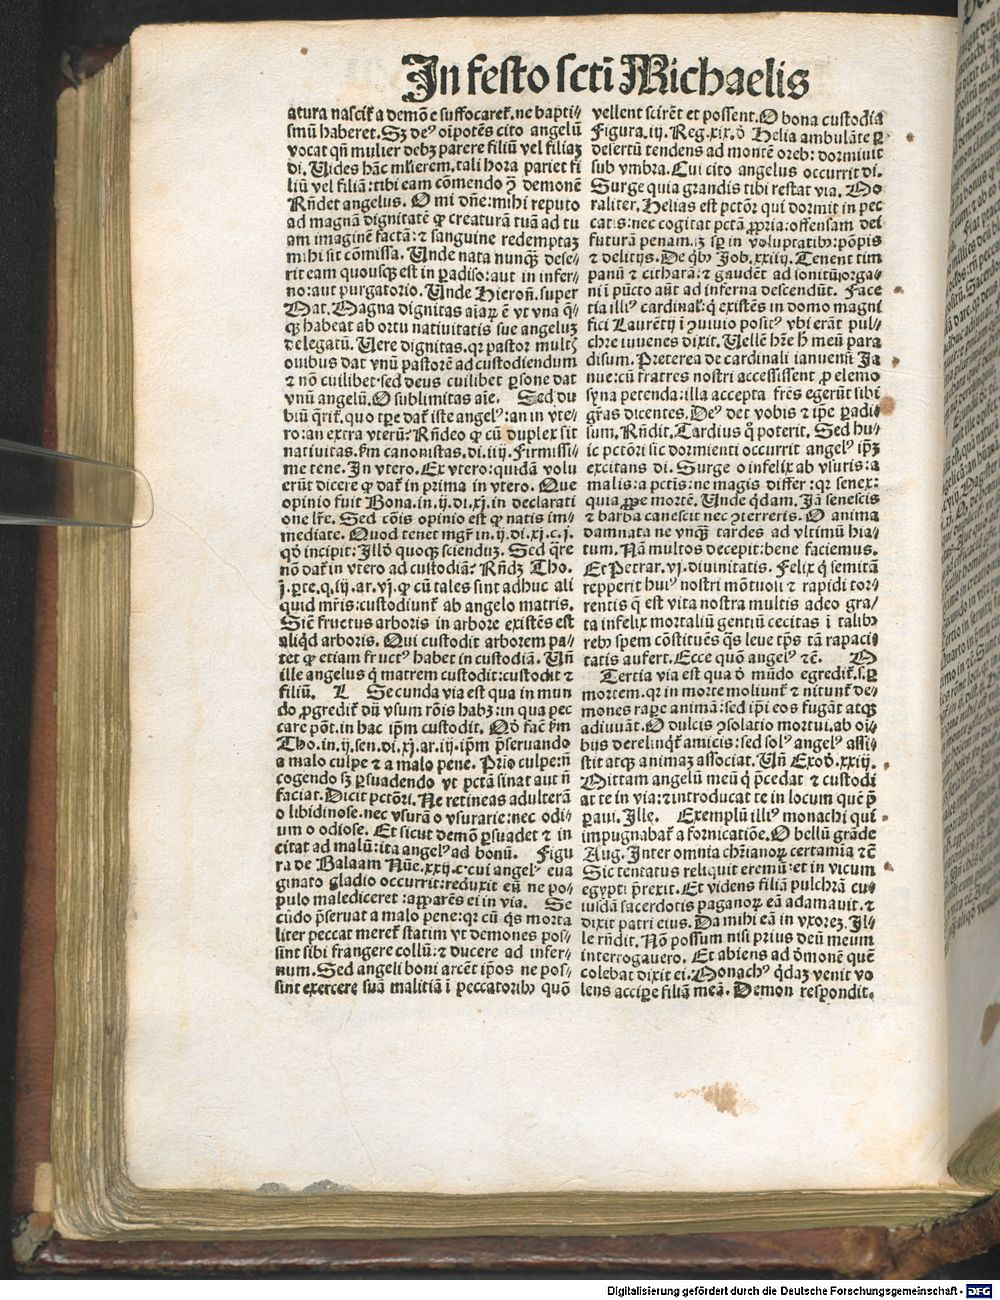 In festo scti̅ Michaelis
atura nascit̉ a demo̅e suffocaret̉. ne bapti⸗
smu̅ haberet. Sꝫ deꝰ oi̅pote̅s cito angelu̅
vocat qn̅ mulier debꝫ parere filiu̅ vel filiaꝫ
di. Uides ha̅c mɫierem. tali hora pariet fi
liu̅ vel filia̅: tibi eam co̅mendo ꝯ̅ demone̅
Rn̅det angelus. O mi dn̅e: mihi reputo
ad magna̅ dignitate̅ ꝙ creatura̅ tua̅ ad tu
am imagine̅ facta̅: ⁊ sanguine redemptaꝫ
mihi sit co̅missa. Unde nata nunqꝫ̅ dese⸗
rit eam quousqꝫ est in ꝑadiso: aut in infer⸗
no: aut purgatorio. Unde Hieron̅. super
Mat. Magna dignitas aiaꝝ e̅ vt vna q̅⸗
qꝫ habeat ab ortu nativitatis sue angeluꝫ
delegatu̅. Uere dignitas. qꝛ pastor multꝭ
ouibus dat vnu̅ pastore̅ ad custodiendum
⁊ no̅ cuilibet. sed deus cuilibet ꝑsone dat
vnu̅ angelu̅. O sublimitas ai̅e. Sed du
biu̅ q̅rit̉. quo tꝑe dat̉ iste angelꝰ: an in vte⸗
ro: an extra vteru̅: Rn̅deo ꝙ cu̅ duplex sit
nativitas. ẜm canonistas. di. iiij. Firmissi⸗
me tene. In vtero. Ex vtero: quida̅ volu
eru̅t dicere ꝙ dat̉ in prima in vtero. Que
opinio fuit Bona. in. ij. di. xj. in declarati
one lr̅e. Sed co̅is opinio est ꝙ natis im⸗
mediate. Quod tenet mgr̅ in. ij. di. xj. c. j.
qd̅ incipit: Illd̅ quoqꝫ scienduꝫ. Sed q̅re
no̅ dat̉ in vtero ad custodia̅: Rn̅dꝫ Tho.
j. ꝑte. q. iij. ar. vj. ꝙ cu̅ tales sint adhuc ali
quid mr̅is: custodiunt̉ ab angelo matris.
Sic̅ fructus arboris in arbore existe̅s est
aliqd̅ arboris. Qui custodit arborem pa⸗
tet ꝙ etiam fructꝰ habet in custodia̅. Un̅
ille angelus q̇ matrem custodit: custodit ⁊
filiu̅. L Secunda via est qua in mun
do ꝓgredit̉ du̅ vsum ro̅is habꝫ: in qua pec
care po̅t. in hac ip̅m custodit. Qd̅ fac̅ ẜm
Tho. in. ij. sen. di. xj. ar. iij. ip̅m p̅seruando
a malo culpe ⁊ a malo pene. Prio culpe: n̅
cogendo sꝫ ꝑsuadendo vt pcta̅ sinat aut n̅
faciat. Dicit pcto̅ri. Ne retineas adultera̅
o libidinose. nec vsura̅ o vsurarie: nec odi⸗
um o odiose. Et sicut demo̅ ꝑsuadet ⁊ in
citat ad malu̅: ita angelꝰ ad bonu̅. Figu
ra de Balaam Nu̅e. xxij. c. cui angelꝰ eua
ginato gladio occurrit: reduxit eu̅ ne po⸗
pulo malediceret: appare̅s ei in via. Se
cu̅do p̅seruat a malo pene: qꝛ cu̅ q̇s morta
liter peccat meret̉ statim vt demones pos⸗
sint sibi frangere collu̅: ⁊ ducere ad infer⸗
num. Sed angeli boni arce̅t ip̅os ne pos⸗
sint exercere sua̅ malitia̅ i̅ peccatoribꝫ quo̅
vellent scire̅t et possent. O bona custodia
Figura. iij. Reg. xix. d̅ Helia ambula̅te ꝑ
desertu̅ tendens ad monte̅ oreb: dormiuit
sub vmbra. Cui cito angelus occurrit di.
Surge quia grandis tibi restat via. Mo
raliter. Helias est pctor̅ qui dormit in pec
catis: nec cogitat pcta̅ ꝓpria: offensam dei
futura̅ penam. sꝫ sꝑ in voluptatibꝫ: po̅pis
⁊ delitijs. De q̇bꝫ Job. xxiiij. Tenent tim
panu̅ ⁊ cithara̅: ⁊ gaude̅t ad sonitu̅ orga⸗
ni i̅ pu̅cto au̅t ad inferna descendu̅t. Face
tia illiꝰ cardinal̉: q̇ existe̅s in domo magni
fici Laure̅tij i̅ ꝯuiuio positꝰ vbi era̅t pul⸗
chre iuuenes dixit. Uelle̅ h̅re h̅ meu̅ para
disum. Preterea de cardinali ianuensi̅ Ja
nue: cu̅ fratres nostri accessissent ꝓ elemo
syna petenda: illa accepta fr̅es egeru̅t sibi
gr̅as dicentes. Deꝰ det vobis ⁊ ip̅e ꝑadi⸗
sum. Rn̅dit. Tardius q̅ poterit. Sed hu⸗
ic pcto̅ri sic dormienti occurrit angelꝰ ip̅ꝫ
excitans di. Surge o infelix ab vsuris: a
malis: a pcti̅s: ne magis differ: qꝛ senex:
quia ꝓpe morte̅. Unde q̇dam. Ja̅ senescis
⁊ barba canescit nec ꝯterreris. O anima
damnata ne vnqꝫ̅ tardes ad vltimu̅ hia⸗
tum. Na̅ multos decepit: bene faciemus.
Et Petrar. vj. diuinitatis. Felix q̇ semita̅
repperit huiꝰ nostri mo̅tuoli ⁊ rapidi tor⸗
rentis q̅ est vita nostra multis adeo gra⸗
ta infelix mortaliu̅ gentiu̅ cecitas i̅ talibꝫ
rebꝫ spem co̅stitue̅s q̅s leue tp̅s ta̅ rapaci⸗
tatis aufert. Ecce quo̅ angelꝰ ⁊c̅. M
Tertia via est qua d̅ mu̅do egredit̉. s. ꝑ
mortem. qꝛ in morte moliunt̉ ⁊ nitunt̉ de⸗
mones raꝑe anima̅: sed ip̅i eos fuga̅t atqꝫ
adiuua̅t. O dulcis ꝯsolatio mortui. ab oi̅⸗
bus derelinqt̉ amicis: sed solꝰ angelꝰ assi⸗
stit atqꝫ animaꝫ associat. Un̅ Exod̅. xxiij.
Mittam angelu̅ meu̅ q̇ p̅cedat ⁊ custodi
at te in via: ⁊ introducat te in locum que̅ p̅
paui. Ille. Exemplu̅ illiꝰ monachi qui
impugnabat̉ a fornicatio̅e. O bellu̅ gra̅de
Aug. Inter omnia chr̅ianoꝝ certamina ⁊c̅
Sic tentatus reliquit eremu̅: et in vicum
egypti p̅rexit. Et videns filia̅ pulchra̅ cu⸗
iusda̅ sacerdotis paganoꝝ ea̅ adamauit. ⁊
dixit patri eius. Da mihi ea̅ in vxoreꝫ. Il⸗
le rn̅dit. No̅ possum nisi prius deu̅ meum
interrogauero. Et abiens ad d̅mone̅ que̅
colebat dixit ei. Monachꝰ q̇daꝫ venit vo
lens accipe filia̅ mea̅. Demon respondit.
Digitalisierung gefördert durch die Deutsche Forschungsgemeinschaft - DFG